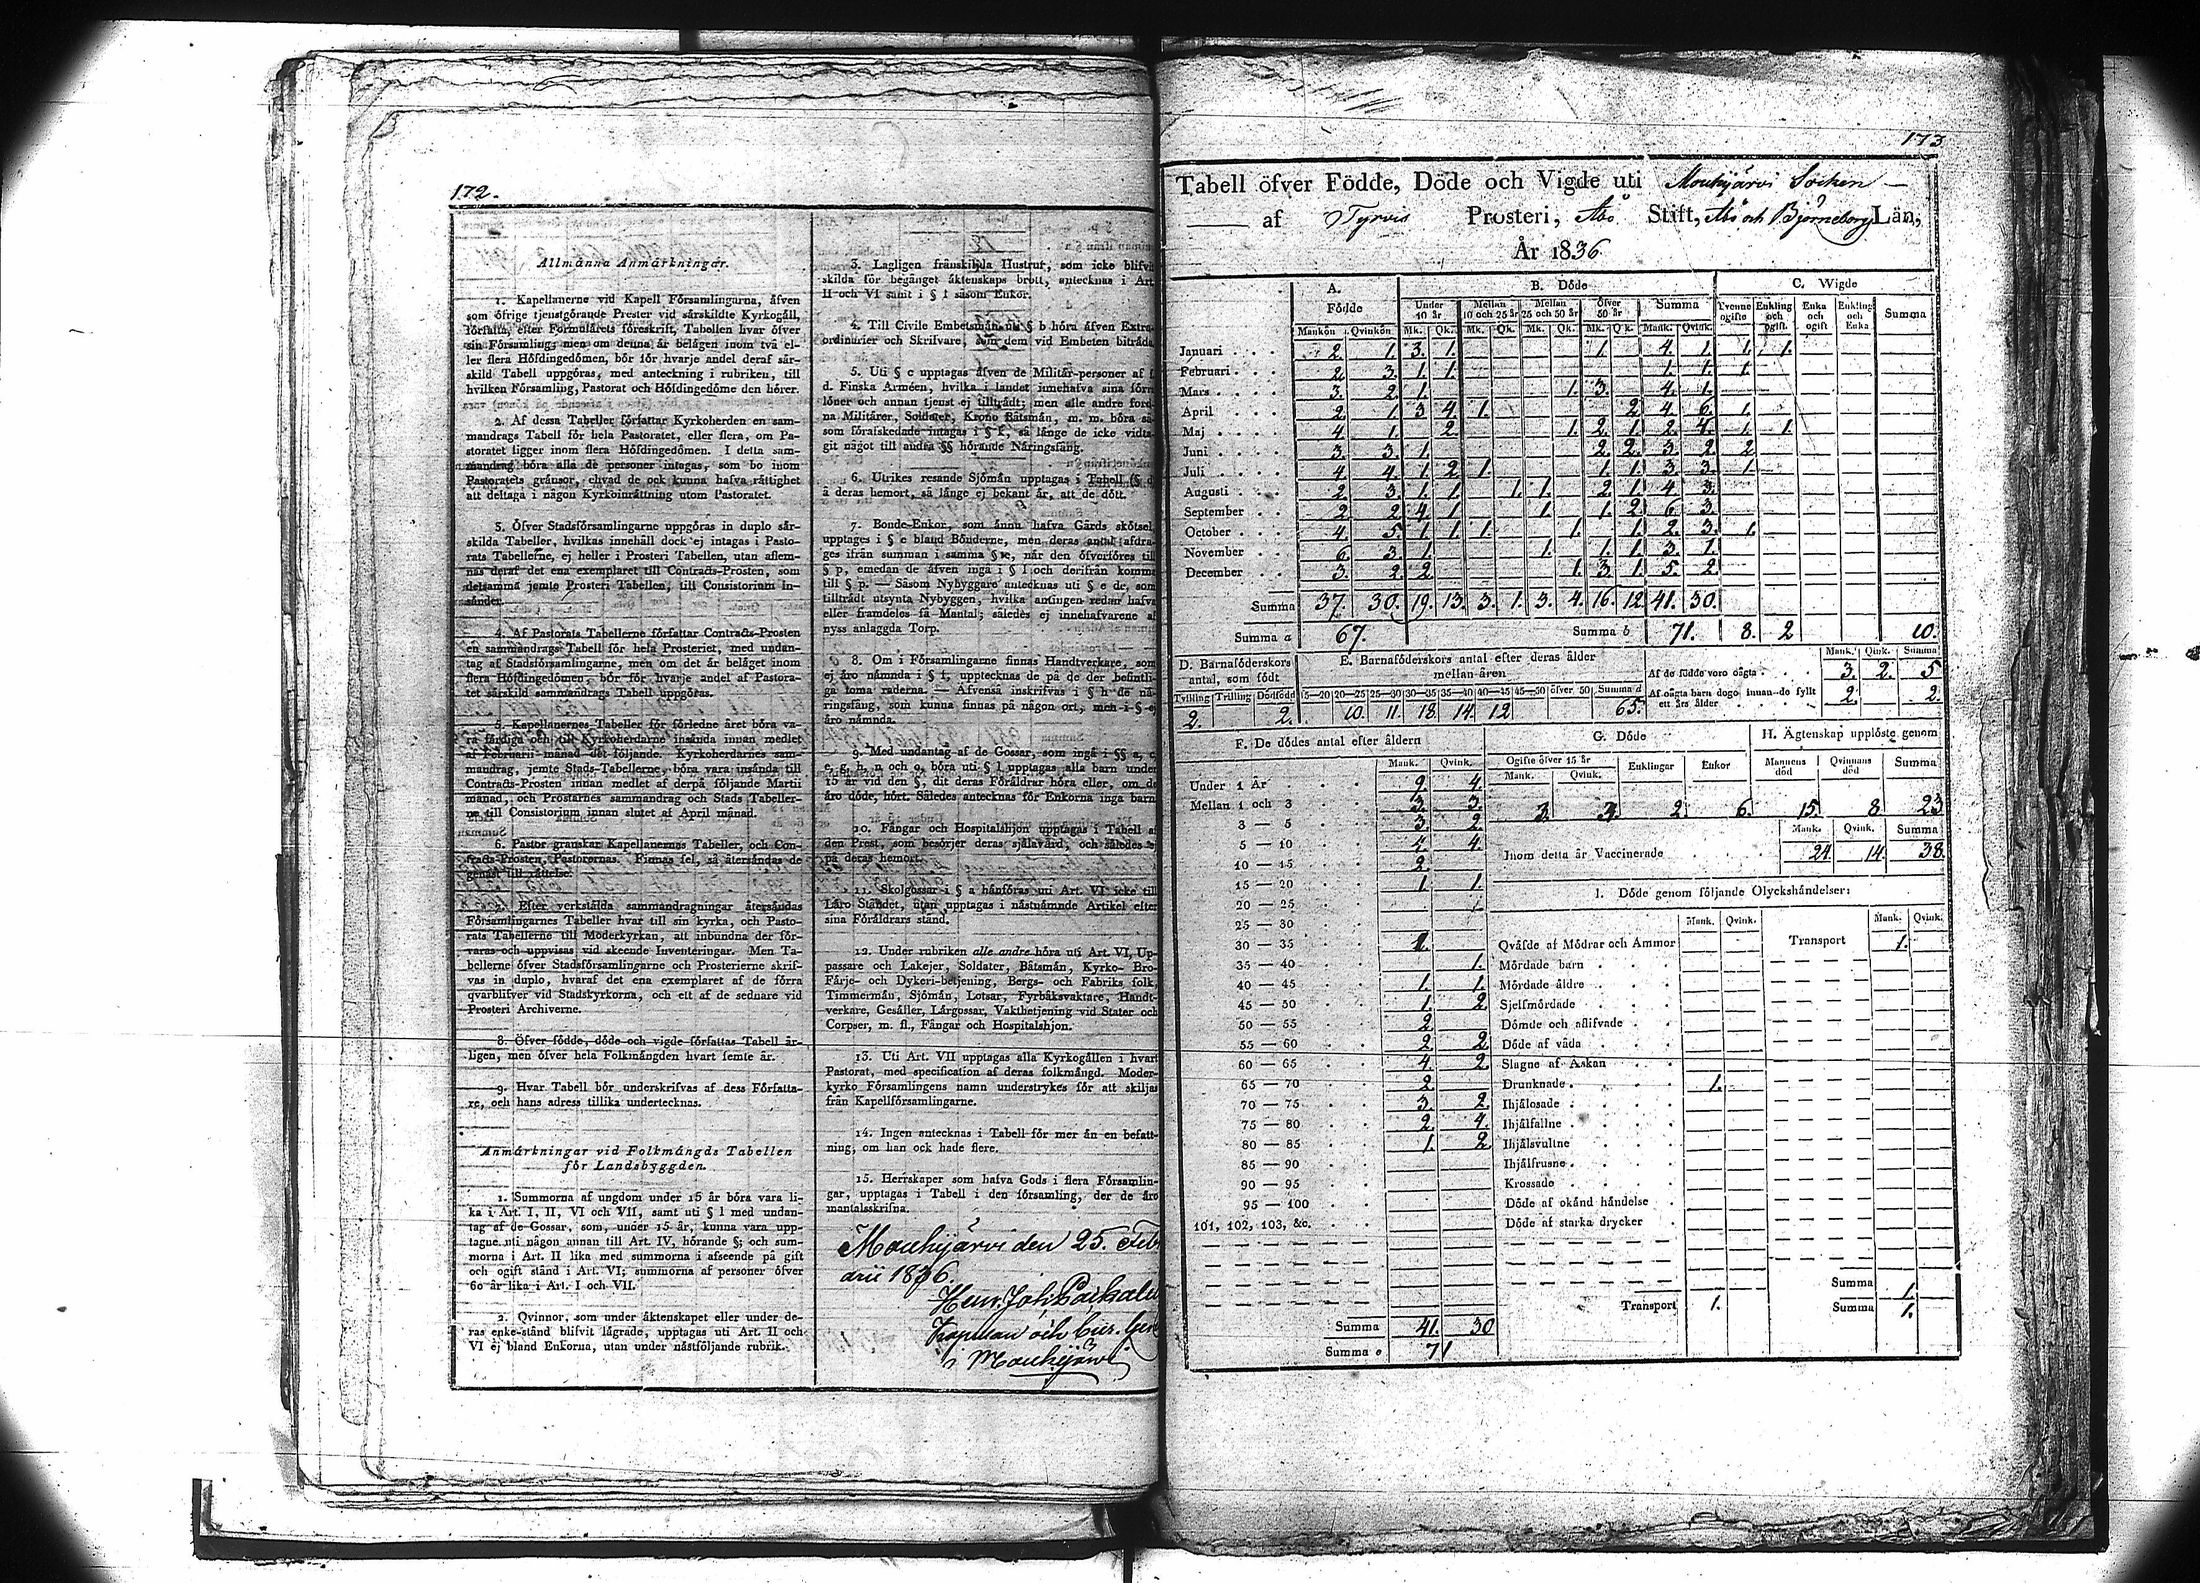 172.
Allmånna Anmårkningar.
1. Kapellanerne vid Kapell Fôrsamlingarna, åfven
som ôfrige tjenstgôrande Prester vid sårskildte Kyrkogåll,
fôrfatta, efter Formulårets fôreskrift, Tabellen hvar ôfver
sin Fôrsamling; men om denna år belågen inom två el-
ler flera Hôfdingedômen, bôr fôr hvarje andel deraf sår-
skild Tabell uppgôras, med anteckning i rubriken, till
hvilken Fôrsamling, Pastorat och Hôfdingedôme den hôrer.
2. Af dessa Tabeller fôrfattar Kyrkoherden en sam-
mandrags Tabell fôr hela Pastoratet, eller flera, om Pa-
storatet ligger inom flera Hôfdingedômen. I detta sam-
mandrag bôra alla de personer intagas, som bo inom
Pastoratets grånsor, ehvad de ock kunna hafva råttighet
att deltaga i någon Kyrkoinråttning utom Pastoratet.
3. Ôfver Stadsfôrsamlingarne uppgôras in duplo sår-
skilda Tabeller, hvilkas innehåll dock ej intagas i Pasto-
rats Tabellerne, ej heller i Prosteri Tabellen, utan aflem-
nas deraf det ena exemplaret till Contracts-Prosten, som
detsamma jemte Prosteri Tabellen, till Consistorium In-
sånder.
4. Af Pastorats Tabellerne fôrfattar Contracts-Prosten
en sammandrags Tabell fôr hela Prosteriet, med undan-
tag af Stadsfôrsamlingarne, men om det år belåget inom
flera Hôfdingedômen, bôr fôr hvarje andel af Pastora-
tet sårskild sammandrags Tabell uppgôras.
5. Kapellanernes Tabeller fôr fôrledne året bôra va-
ra fårdiga och till Kyrkoherdarne insånda innan medlet
af Februarii månad det fôljande. Kyrkoherdarnes sam-
mandrag, jemte Stads-Tabellerne, bôra vara insånda till
Contracts-Prosten innan medlet af derpå fôljande Martii
månad, och Prostarnes sammandrag och Stads Tabeller-
ne till Consistorium innan slutet af April månad.
6. Pastor granskar Kapellanernas Tabeller, och Con-
tracts-Prosten, Pastorernas. Finnas fel, så återsåndas de
genast till råttelse.
7. Efter verkstålda sammandragningar återsåndas
Fôrsamlingarnes Tabeller hvar till sin kyrka, och Pasto-
rats Tabellerne till Moderkyrkan, att inbundna der fôr-
varas och uppvisas vid skeende Inventeringar. Men Ta-
bellerne ôfver Stadsfôrsamlingarne och Prosterierne skrif-
vas in duplo, hvaraf det ena exemplaret af de fôrra
qvarblifver vid Stadskyrkorna, och ett af de sednare vid
Prosteri Archiverne.
8. Ôfver fôdde, dôde och vigde fôrfattas Tabell år-
ligen, men ôfver hela Folkmångden hvart femte år.
9. Hvar Tabell bôr underskrifvas af dess Fôrfatta-
re, och hans adress tillika undertecknas.
Anmårkningar vid Folkmångds Tabellen
fôr Landsbyggden.
1. Summorna af ungdom under 15 år bôra vara li-
ka i Art. I, II, VI och VII, samt uti § l med undan-
tag af de Gossar, som, under 15 år, kunna vara upp-
tagne uti någon annan till Art. IV, hôrande §; och sum-
morna i Art. II lika med summorna i afseende på gift
och ogift stånd i Art. VI; summorna af personer ôfver
60 år lika i Art. I och VII.
2. Qvinnor, som under åktenskapet eller under de-
ras enke-stånd blifvit lågrade, upptagas uti Art. II och
VI ej bland Enkorna, utan under nåstfôljande rubrik.
3. Lagligen frånskilda Hustrur, som icke blifvit
skilda fôr begånget åktenskaps brott, antecknas i Art.
II och VI samt i § l såsom Enkor.
4. Till Civile Embetsmån uti § b hôra åfven Extra-
ordinarier och Skrifvare, som dem vid Embeten bitråda.
5. Uti § c upptagas åfven de Militår-personer af f.
d. Finska Arméen, hvilka i landet innehafva sina fôrra
lôner och annan tjenst ej tilltrådt; men alle andre ford-
na Militårer, Soldater, Krono Båtsmån, m. m. bôra så-
som fôrafskedade intagas i § f, så långe de icke vidta-
git något till andra §§ hôrande Nåringsfång.
6. Utrikes resande Sjômån upptagas i Tabell (§ d)
å deras hemort, så långe ej bekant år, att de dôtt.
7. Bonde-Enkor, som ånnu hafva Gårds skôtsel,
upptages i § e bland Bônderne, men deras antal afdra-
ges ifrån summan i samma § e, når den ôfverfôres till
§ p, emedan de åfven ingå i § l och derifrån komma
till § p. — Såsom Nybyggare antecknas uti § e de, som
tilltrådt utsynta Nybyggen, hvilka antingen redan hafva
eller framdeles få Mantal; således ej innehafvarene af
nyss anlaggda Torp.
8. Om i Fôrsamlingarne finnas Handtverkare, som
ej åro nåmnda i § f, upptecknas de på de der befintli-
ga toma raderna. — Åfvenså inskrifvas i § h de nå-
ringsfång, som kunna finnas på någon ort, men i § ej
åro nåmnda.
9. Med undantag af de Gossar, som ingå i §§ a, c,
e, g, h, n och o, bôra uti § l upptagas alla barn under
15 år vid den §, dit deras Fôråldrar hôra eller, om de
åro dôde, hôrt. Således antecknas fôr Enkorna inga barn.
10. Fångar och Hospitalshjon upptagas i Tabell af
den Prest, som besôrjer deras sjålavård, och således ej
på deras hemort.
11. Skolgossar i § a hånfôras uti Art. VI icke till
Låro Ståndet, utan upptagas i nåstnåmnde Artikel efter
sina Fôråldrars stånd.
12. Under rubriken alle andre hôra uti Art. VI, Up-
passare och Lakejer, Soldater, Båtsmån, Kyrko- Bro-
Fårje- och Dykeri-betjening, Bergs- och Fabriks folk,
Timmermån, Sjômån, Lotsar, Fyrbåksvaktare, Handt-
verkare, Gesåller, Lårgossar, Vaktbetjening vid Stater och
Corpser, m. fl., Fångar och Hospitalshjon.
13. Uti Art. VII upptagas alla Kyrkogållen i hvart
Pastorat, med specification af deras folkmångd. Moder-
kyrko Fôrsamlingens namn understrykes fôr att skiljas
från Kapellfôrsamlingarne.
14. Ingen antecknas i Tabell fôr mer ån en befatt-
ning, om han ock hade flere.
15. Herrskaper som hafva Gods i flera Fôrsamlin-
gar, upptagas i Tabell i den fôrsamling, der de åro
mantalsskrifna.
Mouhijärvi den 25. Febr
arii 1836.
i Mouhijärvi
173
Tabell ôfver Fôdde, Dôde och Vigde uti Mouhijärvi Socken
af Tyrvis Prosteri, Åbo Stift, Åbo och Björneborg Län,
År 1836
A. B. Dôde C. Wigde
Fôdde Under 10 år Mellan 10 och 25 år Mellan 25 och 50 år Ôfver 50 år Summa Tvenne ogifte Enkling och ogift. Enka och ogift Enkling och Enka Summa
Mankôn Qvinkôn Mk. Qk. Mk. Qk. Mk. Qk. Mk. Qk. Mank. Qvink.
Januari 2. 1. 3. 1. 1. 4. 1. 1. 1.
Februari 2. 3. 1. 1. 1. 1. 1.
Mars 3. 2. 1. 1. 3. 4. 1.
April 2. 1. 3. 4. 1. 2. 4. 6. 1.
Maj 4. 1. 2. 1. 2. 1. 2. 4. 1. 1.
Juni 3. 3. 1. 2. 2. 3. 2. 2
Juli 4. 4. 1. 2. 1. 1. 1. 3. 3. 1.
Augusti 2. 3. 1. 1. 1. 1. 2. 1. 4. 3.
September 2. 2. 4. 1. 1. 1. 2. 6. 3.
October 4. 5. 1. 1. 1. 1. 1. 2. 3. 1.
November 6. 3. 1. 1. 1. 1. 3. 1.
December 3. 2. 2. 1. 3. 1. 5. 2.
Summa 37. 30. 19. 13. 3. 1. 3. 4. 16. 12. 41. 30.
Summa a 67. Summa b 71. 8. 2 10.
D. Barnafôderskors antal, som fôdt
E. Barnafôderskors antal efter deras ålder mellan åren
Tvilling Trilling Dôdfôdd 15—20 20—25 25—30 30—35 35—40 40—45 45—50 ôfver 50 Summa d
2. 2. 10. 11. 18. 14. 12 65.
Mank. Qink. Summa
Af de fôdde voro oågta 3. 2. 5
Af oågta barn dogo innan de fyllt ett års ålder 2. 2.
F. De dôdes antal efter åldern
Mank. Qvink.
Under 1 År 9. 4.
Mellan 1 och 3 3. 3.
3 — 5 3. 2.
5 — 10 4. 4.
10 — 15 2.
15 — 20 1. 1.
20 — 25
25 — 30
30 — 35
35 — 40 1.
40 — 45 1. 1.
45 — 50 1. 2
50 — 55 2.
55 — 60 2. 2.
60 — 65 4. 2.
65 — 70 2.
70 — 75 3. 2.
75 — 80 2. 4.
80 — 85 1. 2.
85 — 90
90 — 95
95 — 100
101, 102, 103, &c.
Summa 41. 30
Summa e 71
G. Dôde
Ogifte ôfver 15 år Enklingar Enkor
Mank. Qvink.
2. 6.
H. Ägtenskap upplôste genom
Mannens dôd Qvinnans dôd Summa
15. 8. 23
Mank. Qvink. Summa
Inom detta år Vaccinerade 24. 14. 38.
I. Dôde genom fôljande Olyckshåndelser:
Mank. Qvink. Mank. Qvink.
Qvåfde af Môdrar och Ammor Transport 1.
Môrdade barn
Môrdade åldre
Sjelfmôrdade
Dômde och aflifvade
Dôde af våda
Slagne af Åskan
Drunknade 1.
Ihjålosade
Ihjålfallne
Ihjålsvultne
Ihjålfrusne
Krossade
Dôde af okånd håndelse
Dôde af starka drycker
Summa 1.
Transport 1. Summa 1.